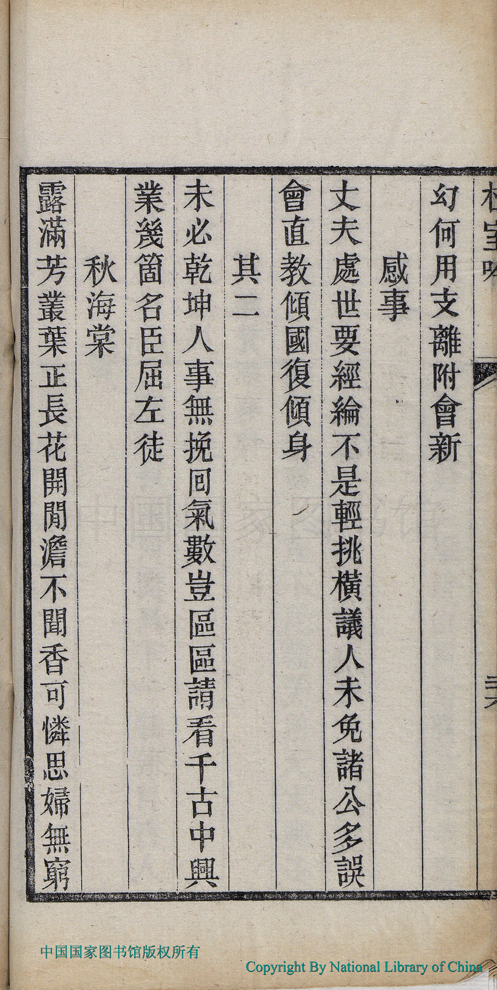 幻何用支離附會新
感事
丈夫處世要經綸不是輕挑橫議人未免諸公多誤
會直教傾國復傾身
其二
未必乾坤人事無挽回氣數豈區區請看千古中興
業幾箇名臣屈左徒
秋海棠
露滿芳叢葉正長花開閒澹不聞香可憐思婦無窮
中国国家图书馆版权所有
Copyright By National Library of China